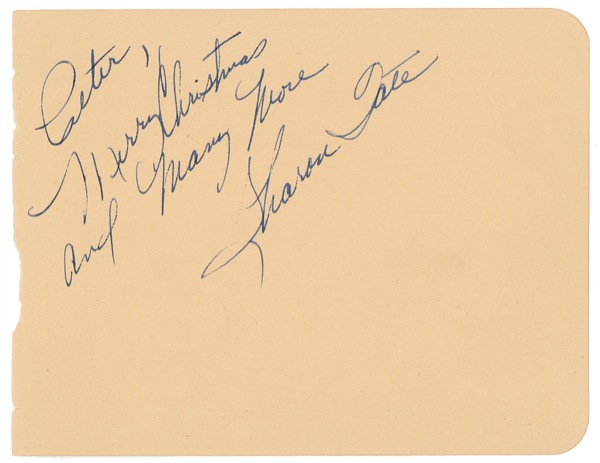 Peter,
Merry Christmas
and Many More
Sharon Tate